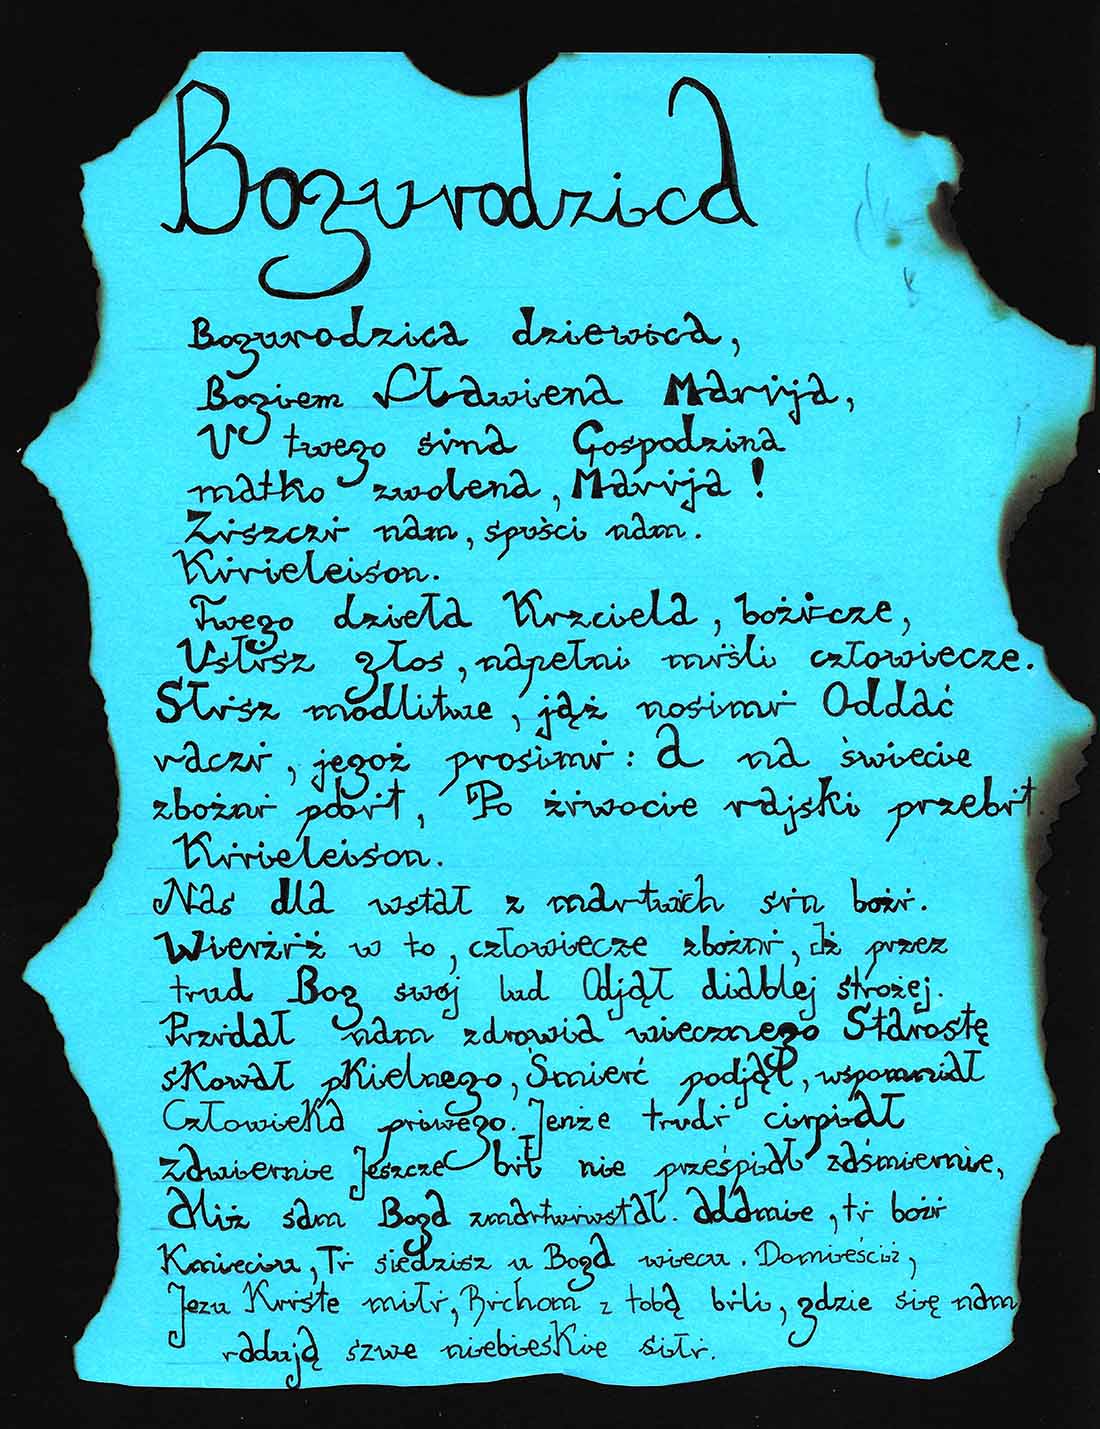 Bogurodzica
Bogurodzica dziewica,
Bogiem Sławiena Maryja,
U twego syna Gospodzina
matko zwolena, Maryja!
Zyszczy nam, spuści nam.
Kyrieleison.
Twego dzieła Krzciela, bożycze,
Usłysz głos, napełni myśli człowiecze.
Słysz modlitwę, jąż nosimy Oddać
raczy, jegoż prosimy: A na świecie
zbożny pobyt, Po żywocie rajski przebyt.
Kyrieleison.
Nas dla wstał z martwych syn boży.
Wierzyż w to, człowiecze zbożny, Iż przez
trud Bog swój lud Odjął diablej strożej.
Przydał nam zdrowia wiecznego Starostę
skował pkielnego, Śmierć podjął, wspomniał
Człowieka pirwego. Jenże trudy cirpiał
Zawiernie Jeszcze był nie prześpiał zaśmiernie,
Aliż sam Bog zmartwywstał. Adamie, ty boży
Kmieciu, Ty siedzisz u Boga wiecu. Domieściż,
Jezu Kryste miły, Bychom z tobą byli, gdzie się nam
radują szwe niebieskie siły.